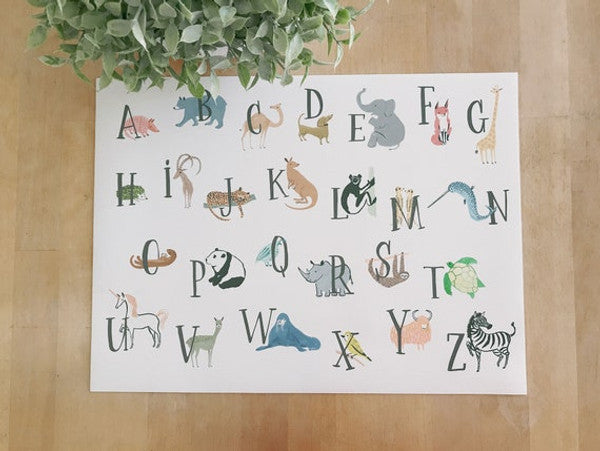 A B C D E F G
H i J K L M N
O P Q R S T
U V W X Y Z